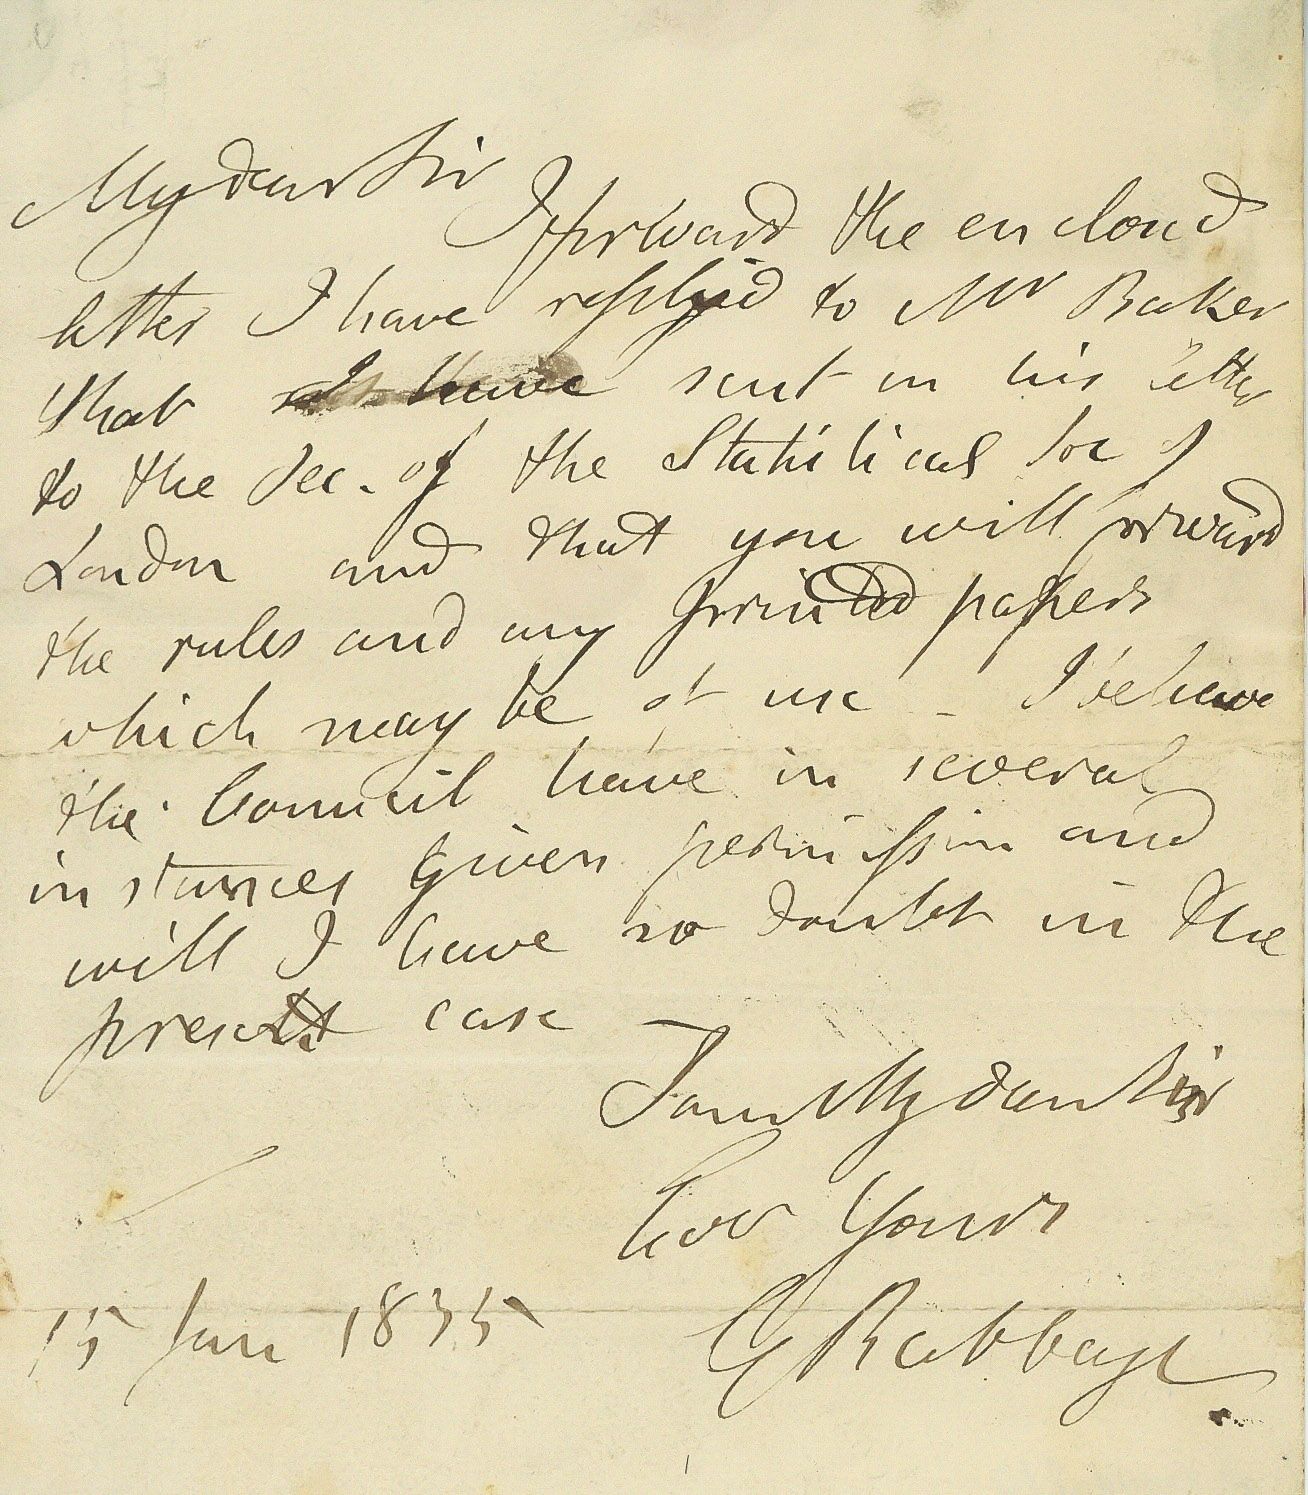 My dear Sir
I forward the enclosed
letter I have replied to Mr Baker
that I have sent on his letter
to the Sec. of the Statistical Soc of
London and that you will forward
the rules and any printed papers
which may be of use - I believe
the Council have in several
instances given permission and
will I have no doubt in the
present case
I am My dear Sir
Ever Yours
C Babbage
15 Jan 1835